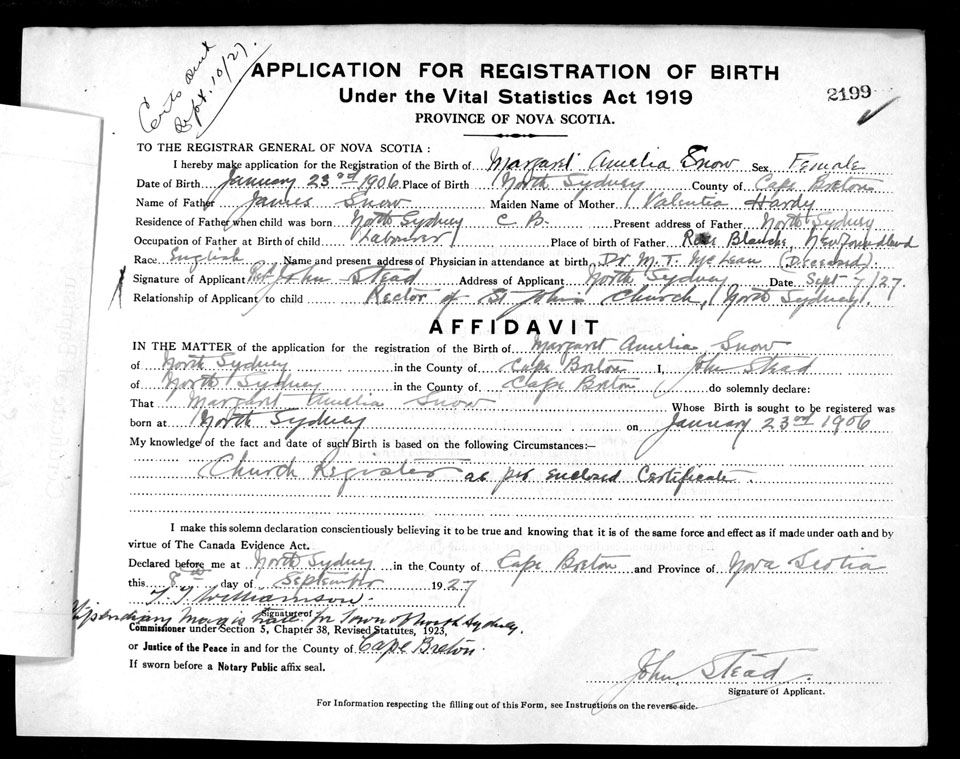 Certs sent
Sept. 10/27.
APPLICATION FOR REGISTRATION OF BIRTH
Under the Vital Statistics Act 1919
2199
PROVINCE OF NOVA SCOTIA.
TO THE REGISTRAR GENERAL OF NOVA SCOTIA :
I hereby make application for the Registration of the Birth of Margaret Amelia Snow Sex Female
Date of Birth January 23rd 1906 Place of Birth North Sydney County of Cape Breton
Name of Father James Snow Maiden Name of Mother Valentia Hardy
Residence of Father when child was born North Sydney C B. Present address of Father North Sydney
Occupation of Father at Birth of child Labourer Place of birth of Father Rose Blanche, Newfoundland
Race English Name and present address of Physician in attendance at birth Dr. M. T. McLean (Deceased)
Signature of Applicant John Stead Address of Applicant North Sydney Date Sept 7/27.
Relationship of Applicant to child Rector of St John's Church, North Sydney.
AFFIDAVIT
IN THE MATTER of the application for the registration of the Birth of Margaret Amelia Snow
of North Sydney in the County of Cape Breton I, John Stead
of North Sydney in the County of Cape Breton do solemnly declare:
That Margaret Amelia Snow Whose Birth is sought to be registered was
born at North Sydney on January 23rd 1906
My knowledge of the fact and date of such Birth is based on the following Circumstances:—
Church Register as per enclosed Certificate.
I make this solemn declaration conscientiously believing it to be true and knowing that it is of the same force and effect as if made under oath and by
virtue of The Canada Evidence Act.
Declared before me at North Sydney in the County of Cape Breton and Province of Nova Scotia
this 8th day of September 1927
Williamson.
Signature of
Stipendiary Magistrate for Town of North Sydney.
Commissioner under Section 5, Chapter 38, Revised Statutes, 1923,
or Justice of the Peace in and for the County of Cape Breton.
If sworn before a Notary Public affix seal.
John Stead.
Signature of Applicant.
For Information respecting the filling out of this Form, see Instructions on the reverse side.